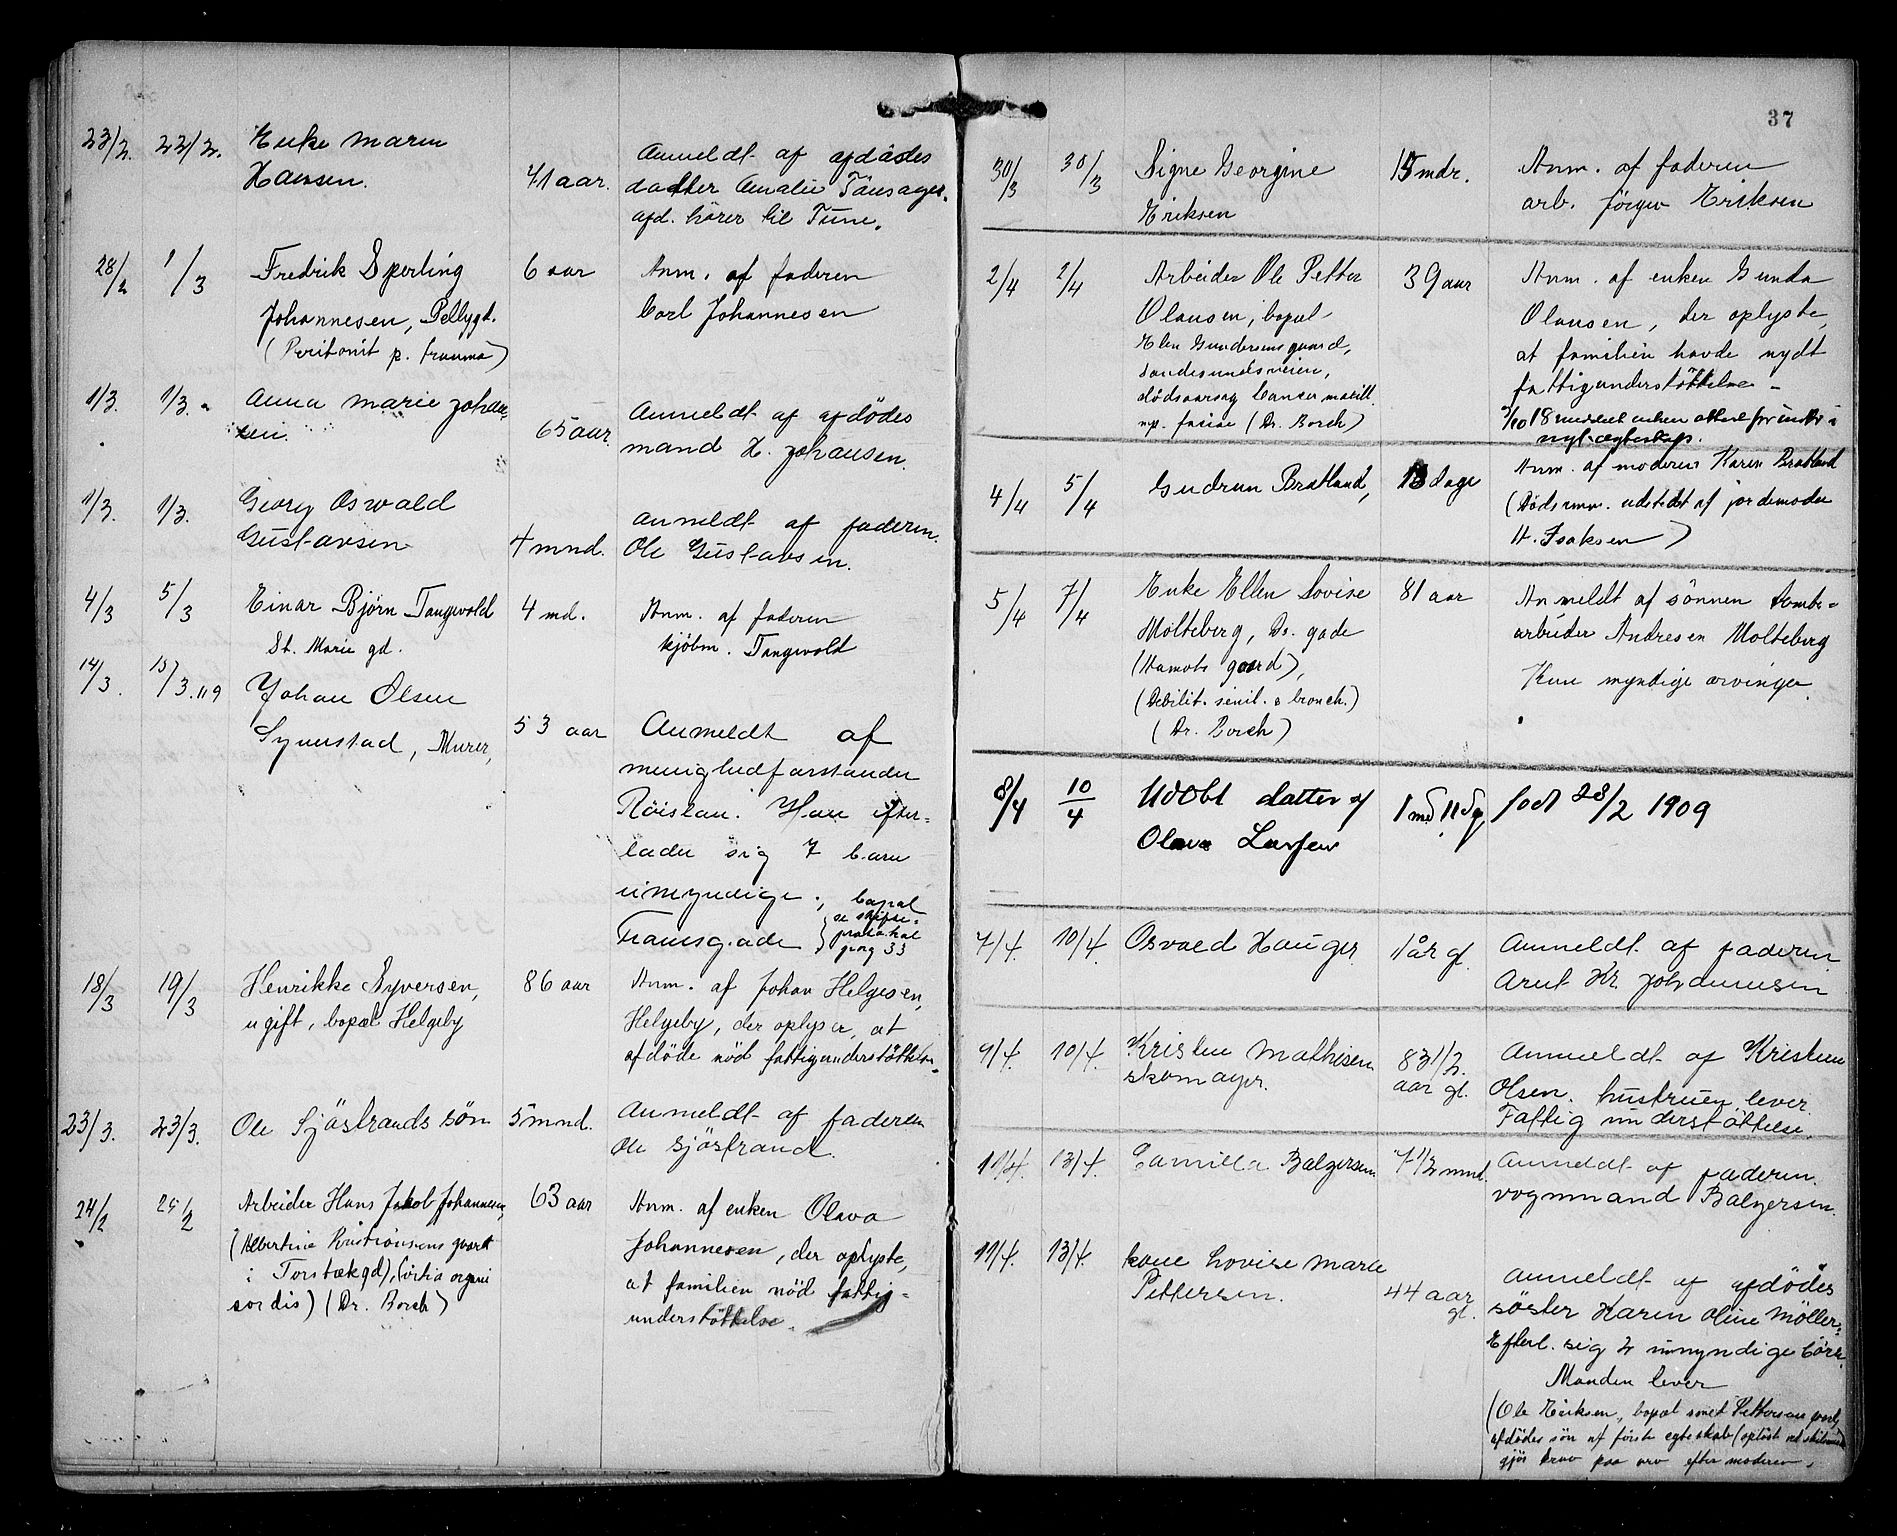 23/2. 22/2. Enke Maren
Hansen. 71 aar. Anmeldt af afdødes
datter Amalie Tunsager.
afd. hører til Tune.
28/2 1/3 Fredrik Sperling 6 aar Anm. af faderen
Johannesen, Pellygd. Carl Johannesen
(Peritonit p. trauma)
1/3. 1/3. Anna Marie Johan-
sen. 65 aar. Anmeldt af afdødes
mand H. Johansen.
1/3. 1/3. Georg Oswald
Gustavsen 4 mnd. Anmeldt af faderen.
Ole Gustavsen.
4/3 5/3 Einar Bjørn Tangwold 4 md. Anm. af faderen
St. Marie gd. kjøbm. Tangwold
14/3. 15/3. 119 Johan Olsen
Synnstad, Murer, 53 aar Anmeldt af
menighedforstander
Røislan. Han efter-
lader sig 7 barn
umyndige., bopæl
Transgade } se skifte-
protokol
pag 33
18/3 19/3 Henrikke Syversen, 86 aar Anm. af Johan Helgesen,
ugift, bopæl Helgeby Helgeby, der oplyser, at
afdøde nød fattigunderstøttelse.
23/3. 23/3. Ole Sjøstrands søn 5 mnd. Anmeldt af faderen
Ole Sjøstrand.
24/2 25/2 Arbeider Hans Jakob Johannesen, 63 aar Anm. af enken Olava
(Albertine Kristiansens gaard Johannesen, der oplyste,
i Torstækgd), (vitia organi at familien nød fattig-
cordis) (Dr. Borch) understøttelse.
37
30/3 30/3 Signe Georgine 15 mdr. Anm. af faderen
Eriksen arb. Jørgen Eriksen
2/4 2/4 Arbeider Ole Petter 39 aar Anm. af enken Gunda
Olausen, bopæl Olausen, der oplyste,
Elen Gundersens gaard, at familien havde nydt
Sandesundsveien, fattigunderstøttelse -
dødsaarsag Cancer maxill.
sup. faciae (Dr. Borch) nyt ægteskap.
4/4 5/4 Gudrun Bratland, 13 dage Anm. af moderen Karen Bratland
(Dødsanm. udstedt af jordemoder
H. Isaksen)
5/4 7/4 Enke Ellen Lovise 81 aar Anmeldt af sønnen tombe-
Molteberg, Ds. gade arbeider Andresen Molteberg
(Hamots gaard), Kun myndige arvinger.
(Debilit. senil. & bronch.)
(Dr. Borch)
8/4 10/4 Udøbt datter af 1 md 11 dg født 28/2 1909
Olava Larsen
7/4. 10/4. Osvald Hauger 1 år gl. Anmeldt af faderen
Arnt Kr. Johannesen
9/4. 10/4. Kristen Mathisen 83 1/2. Anmeldt af Kristian
skomager. aar gl. Olsen. hustruen lever.
Fattig understøttelse.
11/4 13/4. Camilla Balgersen 7 1/2 mnd. Anmeldt af faderen.
vognmand Balgersen.
11/4. 13/4. kone Lovise Marie
Pettersen. 44 aar gl. Anmeldt af afdødes
søster Karen Oline Møller.
Efterl. sig 2 umyndige børn.
Manden lever
(Ole Eriksen, bopæl
afdødes søn af første egteskab
gjør krav paa arv efter moderen.